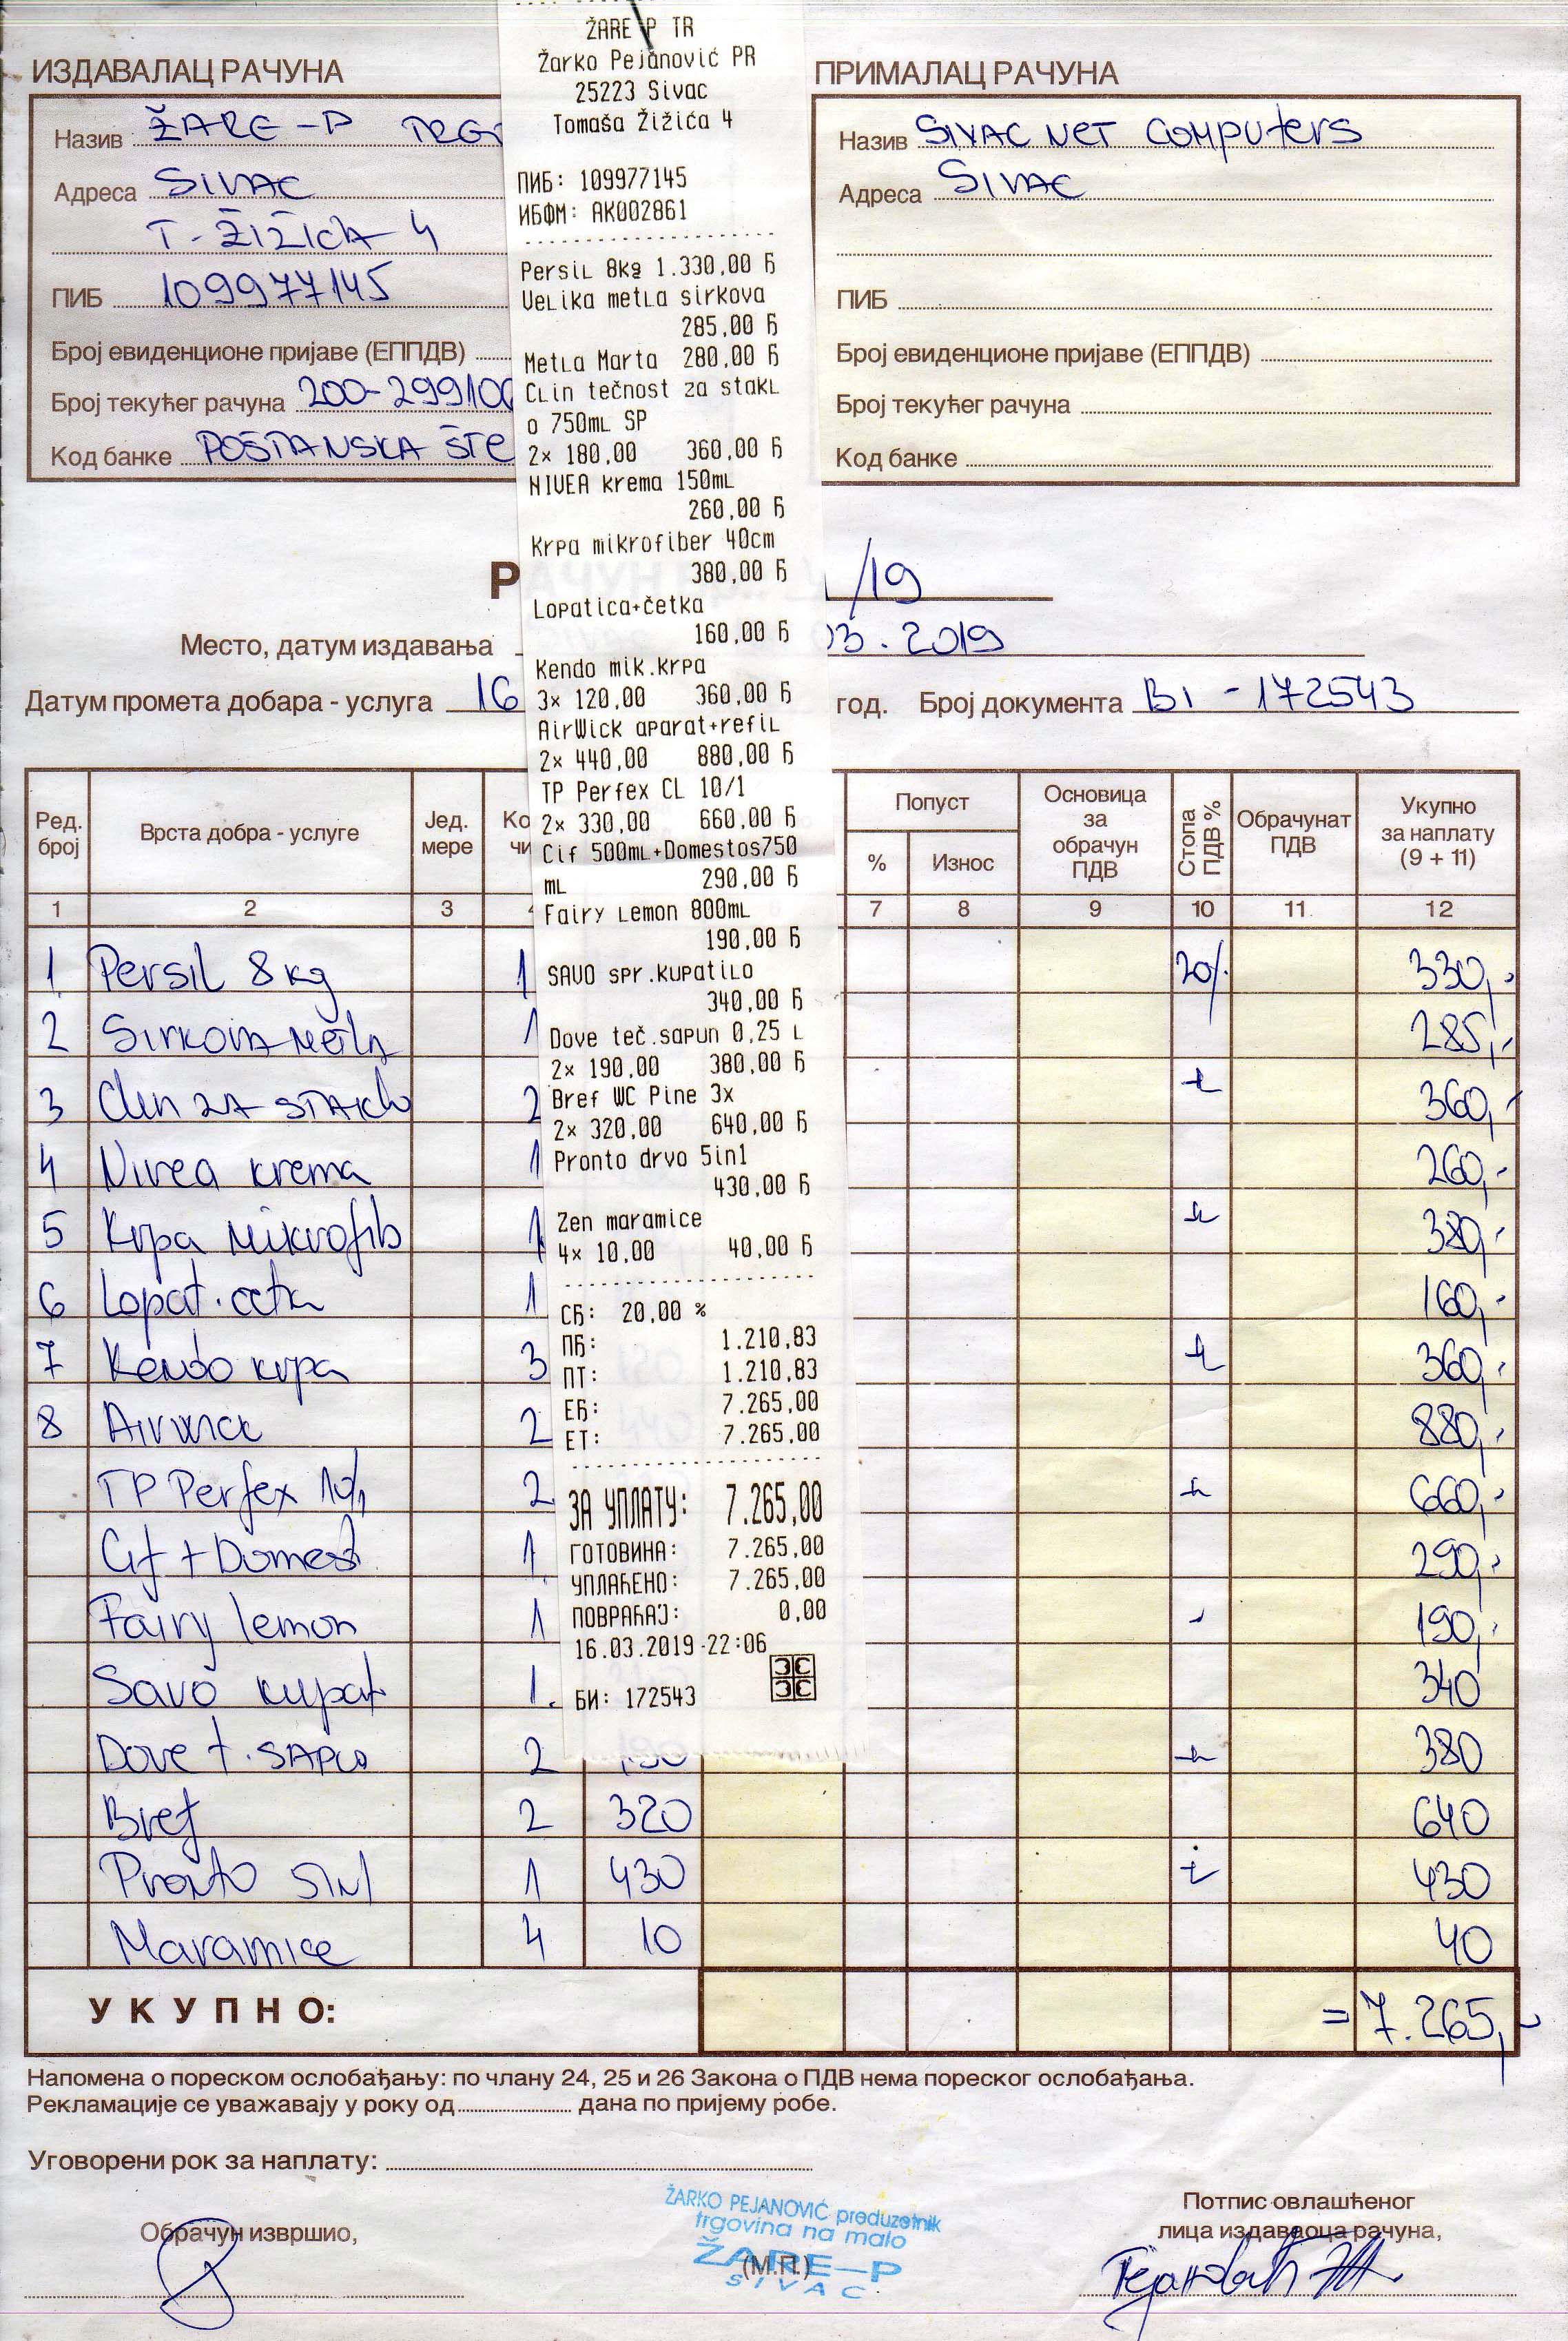 ŽARE-P TR
Žarko Pejanović PR
25223 Sivac
Tomaša Žižića 4
ПИБ: 109977145
ИБФМ: AK002861
Persil 8kg 1.330,00 Ђ
Velika metla sirkova
285,00 Ђ
Metla Marta 280,00 Ђ
Clin tečnost za stakl
o 750mL SP
2x 180,00 360,00 Ђ
NIVEA krema 150mL
260,00 Ђ
Krpa mikrofiber 40cm
380,00 Ђ
Lopatica+četka
160,00 Ђ
Kendo mik.krpa
3x 120,00 360,00 Ђ
AirWick aparat+refil
2x 440,00 880,00 Ђ
TP Perfex CL 10/1
2x 330,00 660,00 Ђ
Cif 500mL+Domestos750
mL 290,00 Ђ
Fairy Lemon 800mL
190,00 Ђ
SAVO spr.kupatilo
340,00 Ђ
Dove teč.sapun 0,25 L
2x 190,00 380,00 Ђ
Bref WC Pine 3x
2x 320,00 640,00 Ђ
Pronto drvo 5in1
430,00 Ђ
Zen maramice
4x 10,00 40,00 Ђ
СЂ: 20,00 %
ПЂ: 1.210,83
ПТ: 1.210,83
ЕЂ: 7.265,00
ЕТ: 7.265,00
ЗА УПЛАТУ: 7.265,00
ГОТОВИНА: 7.265,00
УПЛАЋЕНО: 7.265,00
ПОВРАЋАЈ: 0,00
16.03.2019-22:06
БИ: 172543
ИЗДАВАЛАЦ РАЧУНА
Назив ŽARE-P
Адреса SIVAC
T. ŽIŽIĆA 4
ПИБ 109977145
Број евиденционе пријаве (ЕППДВ)
Број текућег рачуна 200-299100
Код банке POŠTANSKA ŠTE
ПРИМАЛАЦ РАЧУНА
Назив SIVAC NET COMPUTERS
Адреса SIVAC
ПИБ
Број евиденционе пријаве (ЕППДВ)
Број текућег рачуна
Код банке
Р /19
Место, датум издавања 03.2019
Датум промета добара - услуга 16 год. Број документа BI - 172543
Ред. број Врста добра - услуге Јед. мере Ко чи Попуст % Износ Основица за обрачун ПДВ Стопа ПДВ % Обрачунат ПДВ Укупно за наплату (9 + 11)
1 2 3 4 7 8 9 10 11 12
1 Persil 8kg 1 20% 330,-
2 SIRKOVA METLA 1 285,-
3 Clin ZA STAKLO 2 360,-
4 Nivea krema 1 260,-
5 Krpa Mikrofib 1 380,-
6 Lopat. cetk 1 160,-
7 Kendo krpa 3 360,-
8 Airwick 2 880,-
TP Perfex 10/1 2 660,-
Cif + Domest 1 290,-
Fairy lemon 1 190,-
Savo kupat 1. 340
Dove t. SAPUN 2 380
Bref 2 320 640
Pronto 5in1 1 430 430
Maramice 4 10 40
УКУПНО: =7.265,-
Напомена о пореском ослобађању: по члану 24, 25 и 26 Закона о ПДВ нема пореског ослобађања.
Рекламације се уважавају у року од ............ дана по пријему робе.
Уговорени рок за наплату:
Обрачун извршио,
ŽARKO PEJANOVIĆ preduzetnik
trgovina na malo
ŽARE-P
SIVAC
(М.П.)
Потпис овлашћеног
лица издаваоца рачуна,